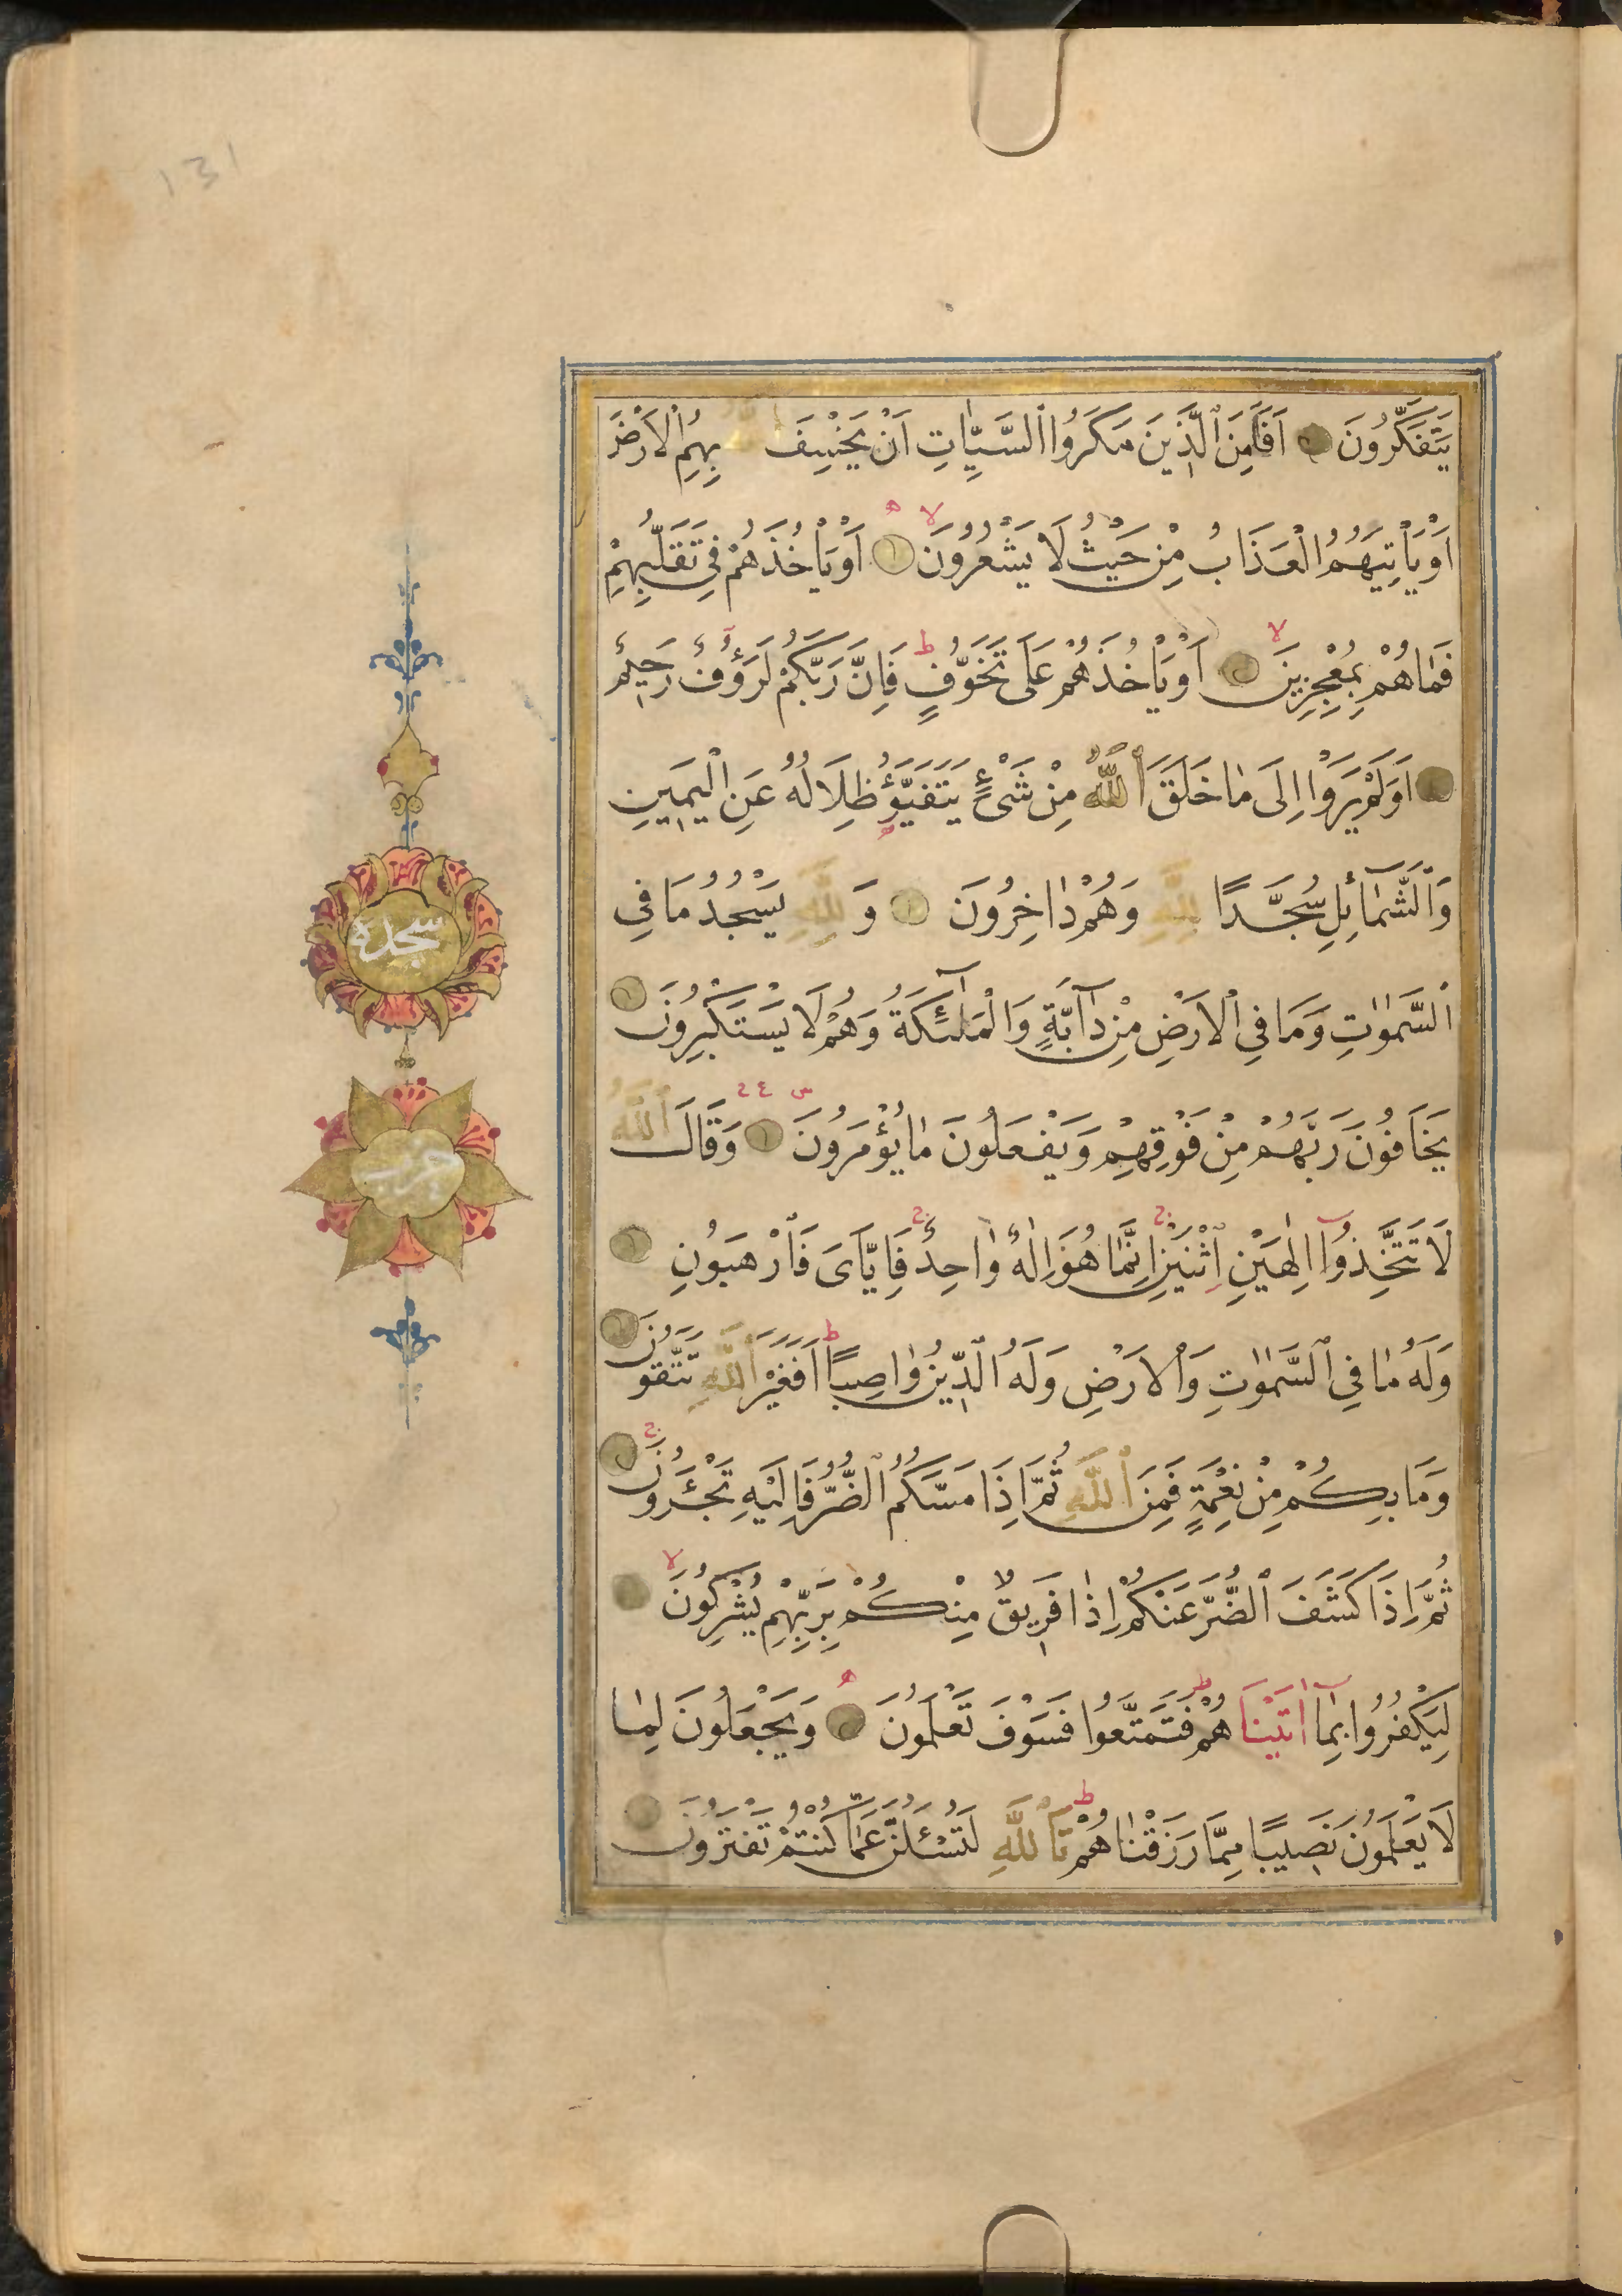 131
يَتَفَكَّرُونَ اَفَاَمِنَ الَّذِينَ مَكَرُوا السَّيِّاٰتِ اَنْ يَخْسِفَ اللّٰهُ بِهِمُ الْاَرْضَ
اَوْ يَاْتِيَهُمُ الْعَذَابُ مِنْ حَيْثُ لَا يَشْعُرُونَ اَوْ يَاْخُذَهُمْ فِي تَقَلُّبِهِمْ
فَمَا هُمْ بِمُعْجِزِينَ اَوْ يَاْخُذَهُمْ عَلَى تَخَوُّفٍ فَاِنَّ رَبَّكُمْ لَرَؤُفٌ رَحِيمٌ
اَوَلَمْ يَرَوْا اِلَى مَا خَلَقَ اللّٰهُ مِنْ شَيْءٍ يَتَفَيَّؤُ ظِلَالُهُ عَنِ الْيَمِينِ
وَالشَّمَآئِلِ سُجَّدًا لِلّٰهِ وَهُمْ دَاخِرُونَ وَ لِلّٰهِ يَسْجُدُ مَا فِي
السَّمٰوٰتِ وَمَا فِي الْاَرْضِ مِنْ دَآبَّةٍ وَالْمَلٰٓئِكَةُ وَهُمْ لَا يَسْتَكْبِرُونَ
يَخَافُونَ رَبَّهُمْ مِنْ فَوْقِهِمْ وَيَفْعَلُونَ مَا يُؤْمَرُونَ وَقَالَ اللّٰهُ
لَا تَتَّخِذُوٓا اِلٰهَيْنِ اثْنَيْنِ اِنَّمَا هُوَ اِلٰهٌ وَاحِدٌ فَاِيَّايَ فَارْهَبُونِ
وَلَهُ مَا فِي السَّمٰوٰتِ وَالْاَرْضِ وَلَهُ الدِّينُ وَاصِبًا اَفَغَيْرَ اللّٰهِ تَتَّقُونَ
وَمَا بِكُمْ مِنْ نِعْمَةٍ فَمِنَ اللّٰهِ ثُمَّ اِذَا مَسَّكُمُ الضُّرُّ فَاِلَيْهِ تَجْـَٔرُونَ
ثُمَّ اِذَا كَشَفَ الضُّرَّ عَنْكُمْ اِذَا فَرِيقٌ مِنْكُمْ بِرَبِّهِمْ يُشْرِكُونَ
لِيَكْفُرُوا بِمَآ اٰتَيْنَاهُمْ فَتَمَتَّعُوا فَسَوْفَ تَعْلَمُونَ وَيَجْعَلُونَ لِمَا
لَا يَعْلَمُونَ نَصِيبًا مِمَّا رَزَقْنَاهُمْ تَاللّٰهِ لَتُسْـَٔلُنَّ عَمَّا كُنْتُمْ تَفْتَرُونَ
سجدة
حزب